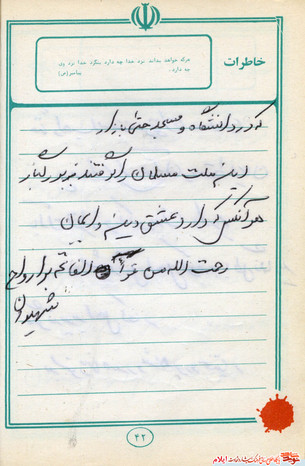 خاطرات
هرکه خواهد بداند نزد خدا چه دارد بنگرد خدا نزد وی
چه دارد.
پیامبر(ص)
که در دانشگاه و مسجد حتی بازار
این ملت مسلمان را گرفتند زیر رگبار
هر آنکس که دارد عشق دین و ایمان
رحمت الله من قرأ الفاتحه بر ارواح
شهیدان
۴۲